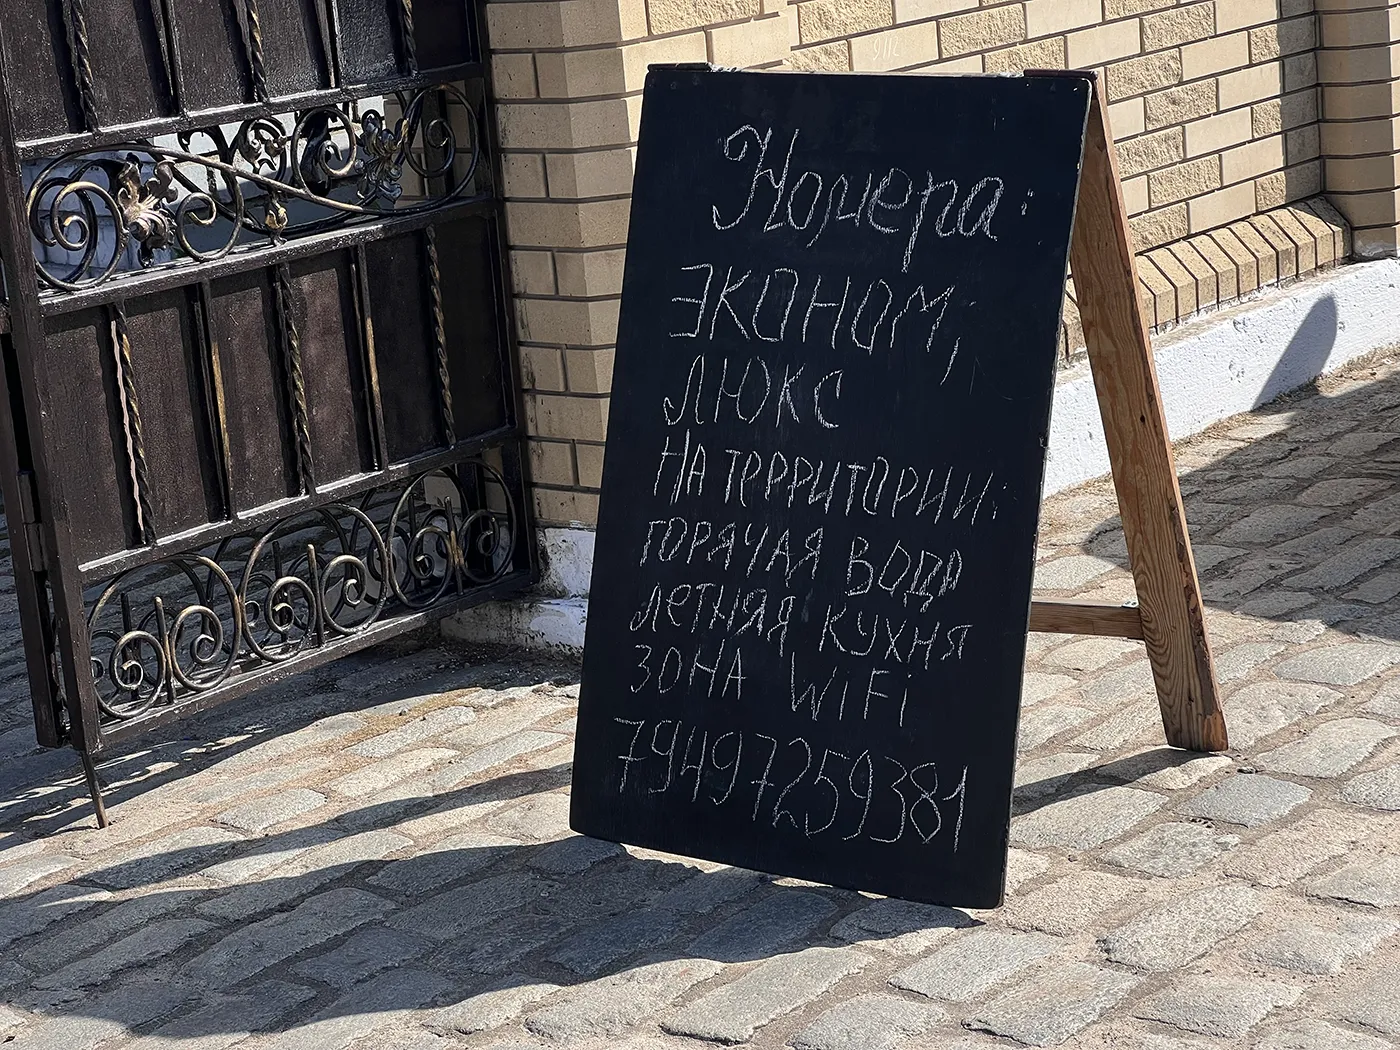 Номера:
ЭКОНОМ,
ЛЮКС
НА ТЕРРИТОРИИ:
ГОРЯЧАЯ ВОДА
ЛЕТНЯЯ КУХНЯ
ЗОНА WiFi
79497259381